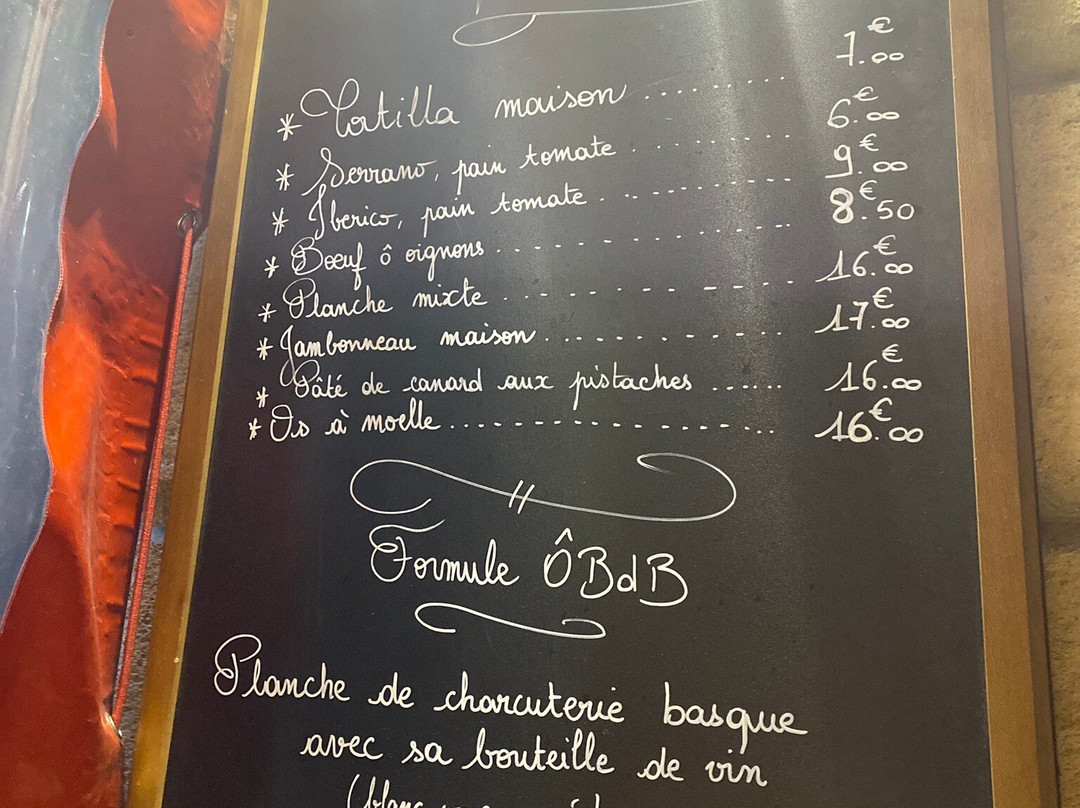 * Tortilla maison ........ 7.€00
* Serrano, pain tomate ........ 6.€00
* Iberico, pain tomate ........ 9.€00
* Boeuf ô oignons ........ 8.€50
* Planche mixte ........ 16.€00
* Jambonneau maison ........ 17.€00
* Pâté de canard aux pistaches ...... 16.€00
* Os à moelle ........ 16.€00
Formule ÔBdB
Planche de charcuterie basque
avec sa bouteille de vin
(blanc